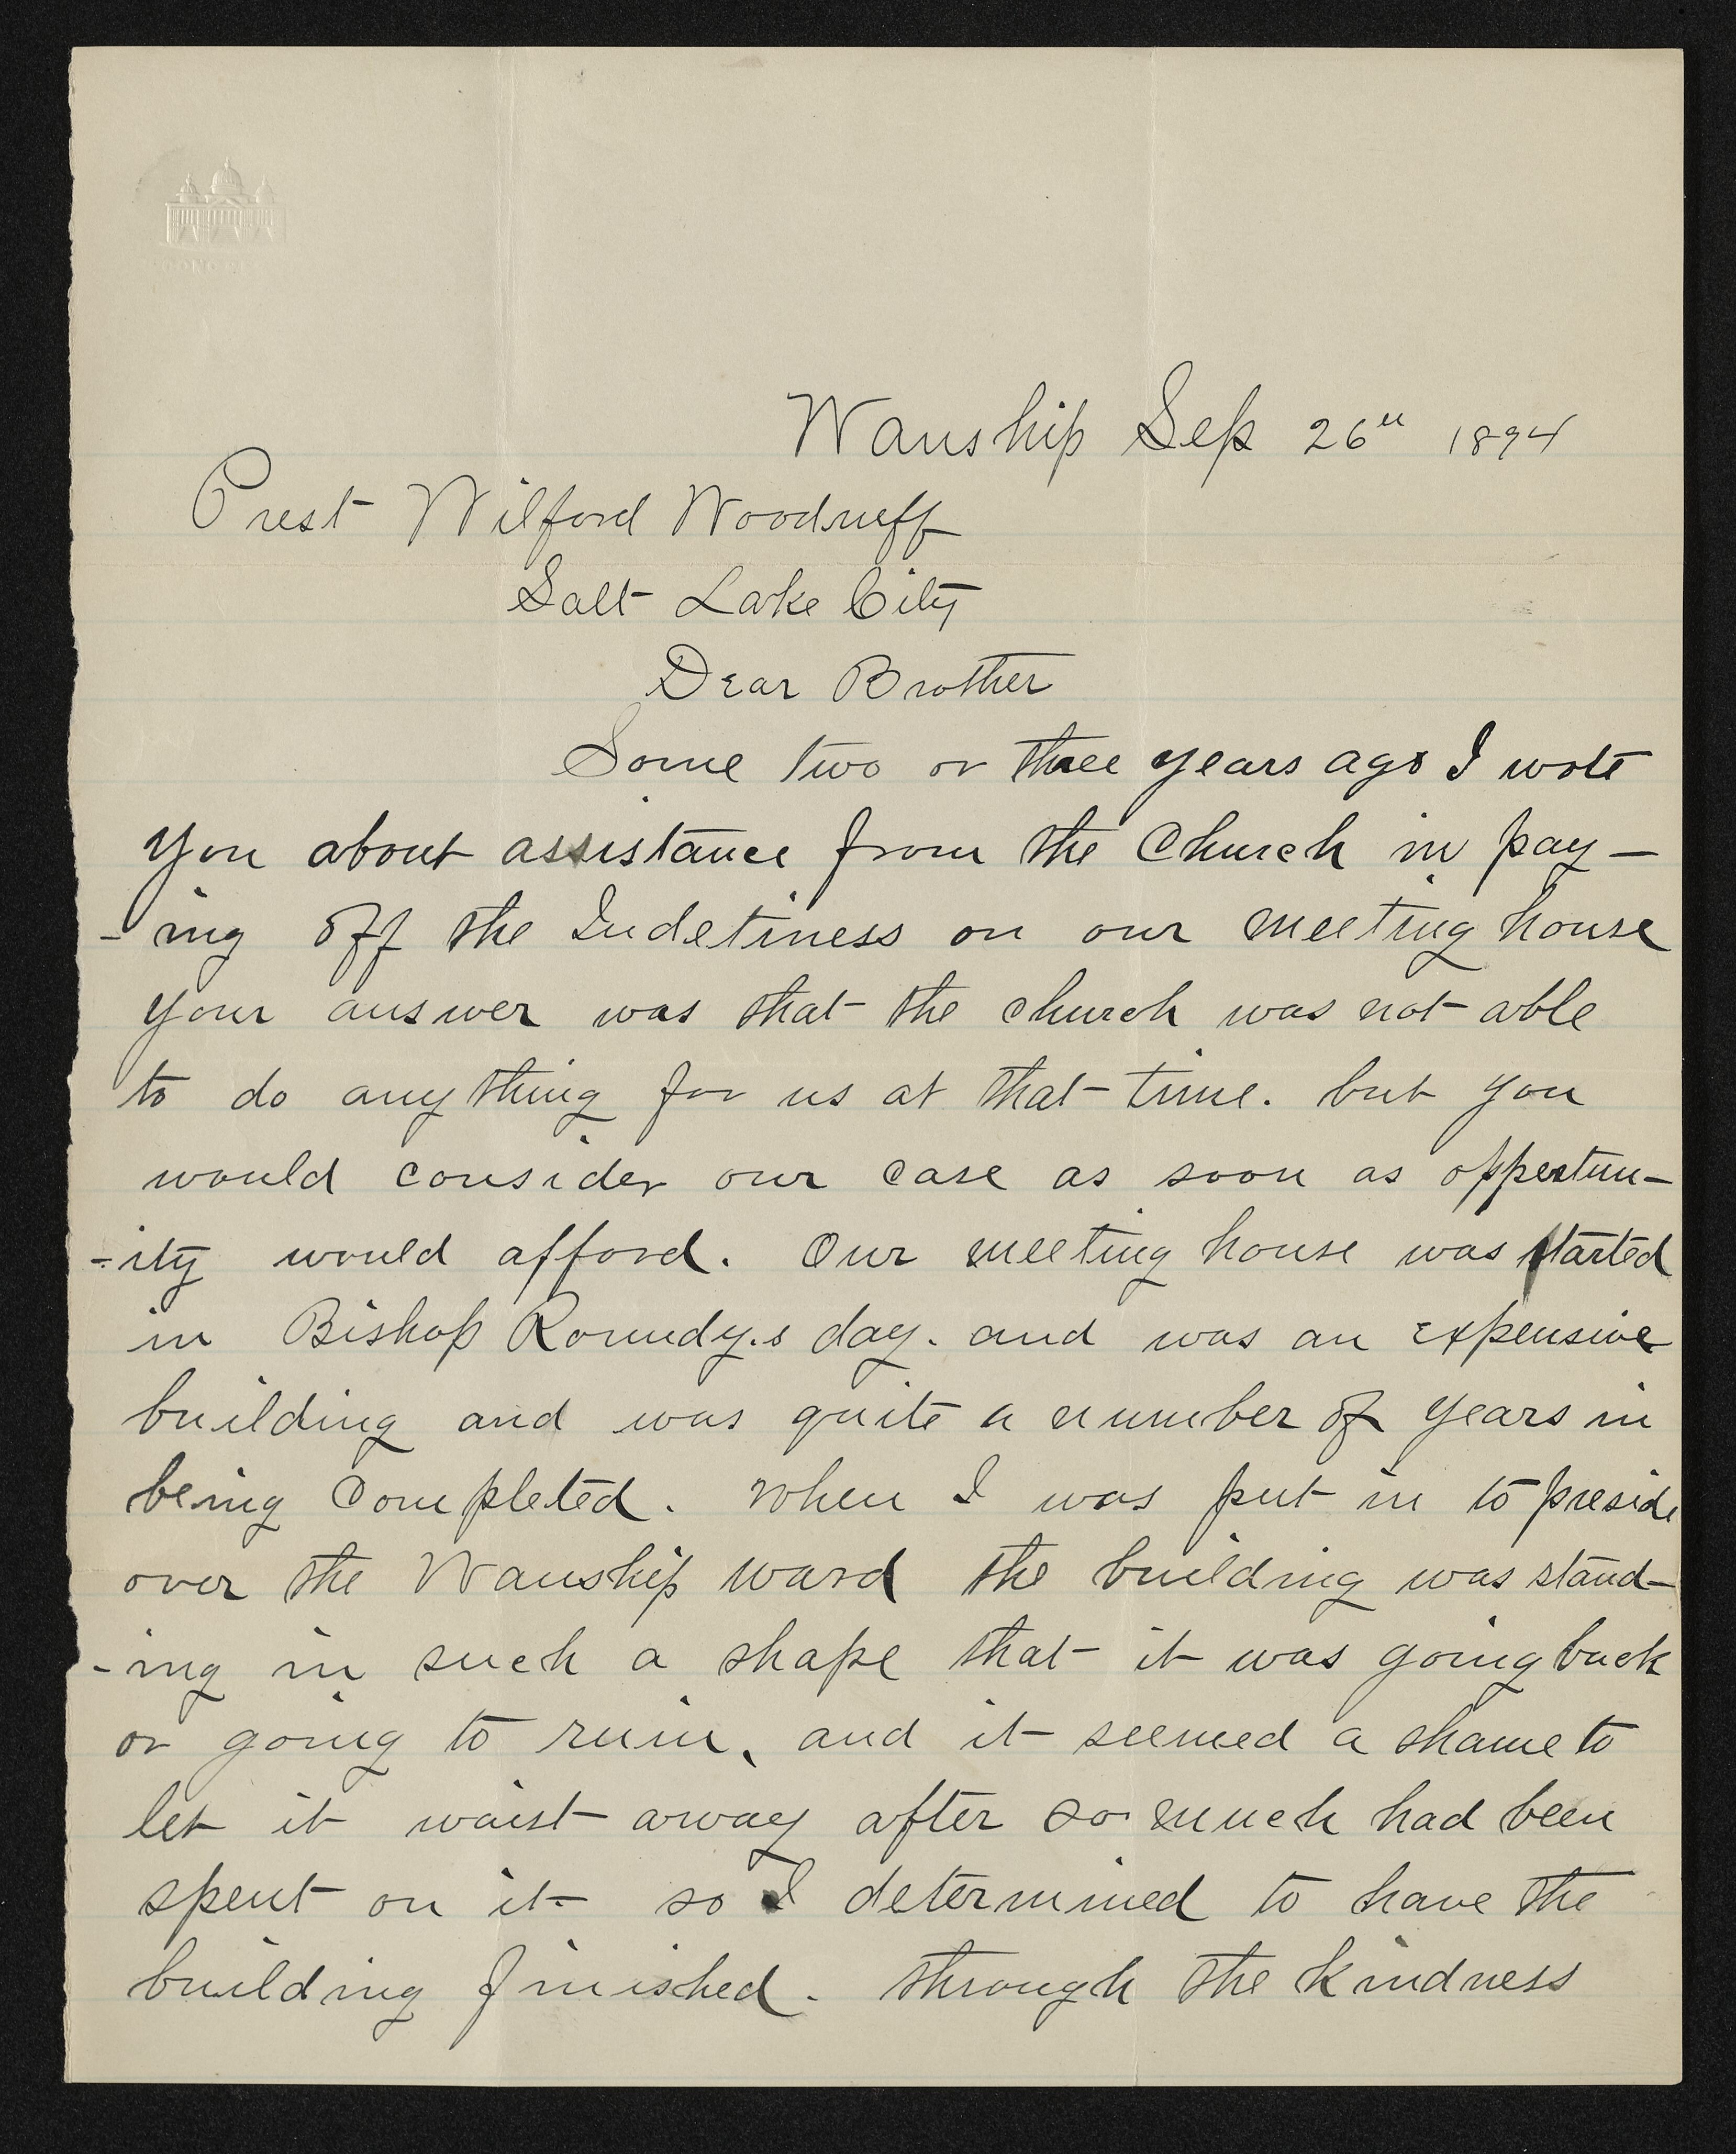 Wanship Sep 26th 1894
Prest Wilford Woodruff
Salt Lake City
Dear Brother
Some two or three years ago I wote
you about assistance from the Church in pay-
-ing off the Indetiness on our meeting house
your answer was that the church was not able
to do any thing for us at that time. but you
would consider our case as soon as oppertun-
-ity would afford. Our meeting house was started
in Bishop Roundy.s day. and was an expensive
building and was quite a number of years in
being Completed. When I was put in to preside
over the Wanship ward the building was stand-
-ing in such a shape that it was going back
or going to ruin, and it seemed a shame to
let it waist away after so much had been
spent on it so I determined to have the
building finished. through the kindness